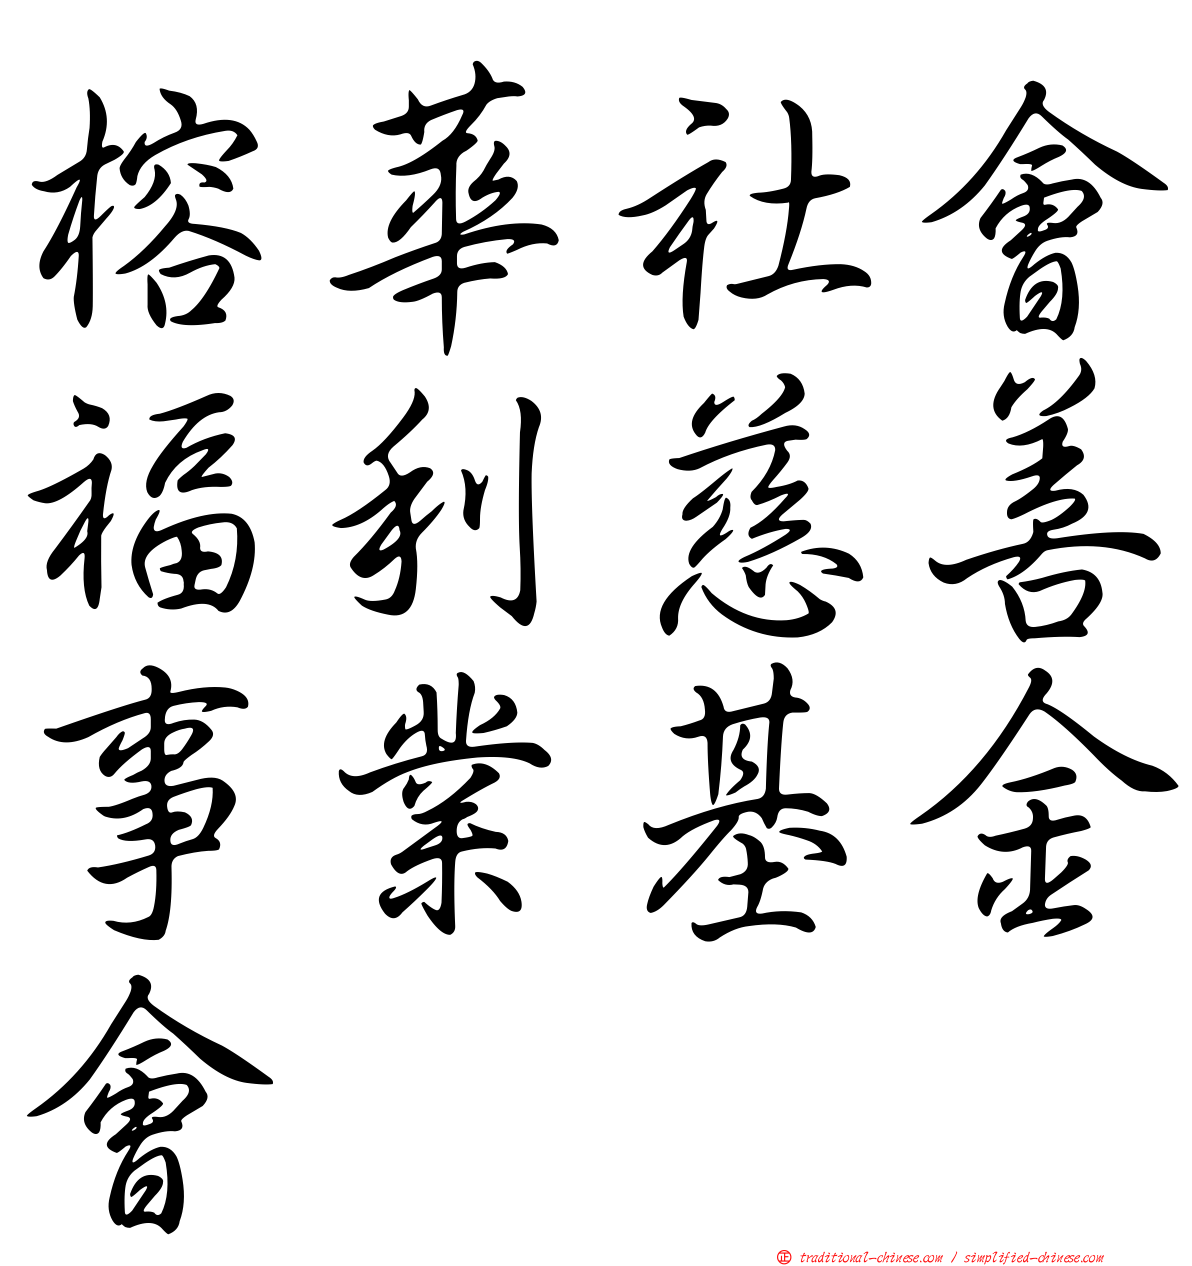 榕華社會
福利慈善
事業基金
會
正 traditional-chinese.com / simplified-chinese.com